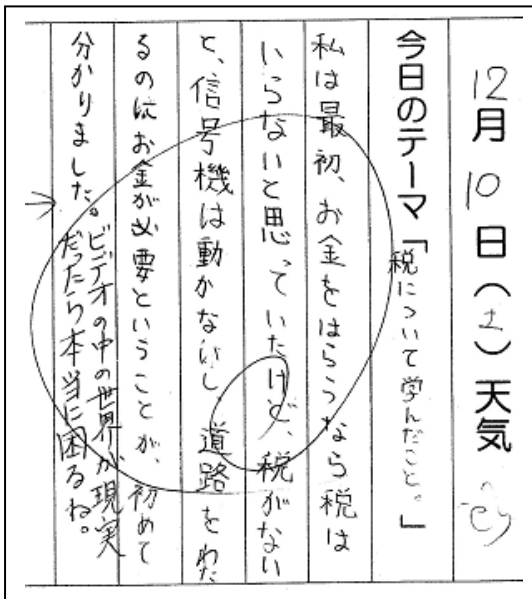 12月10日(土)天気
今日のテーマ「税について学んだこと。」
私は最初、お金をはらうなら税は
いらないと思っていたけど、税がない
と、信号機は動かないし、道路をわた
るのにお金が必要ということが、初めて
分かりました。
ビデオの中の世界が現実
だったら本当に困るね。